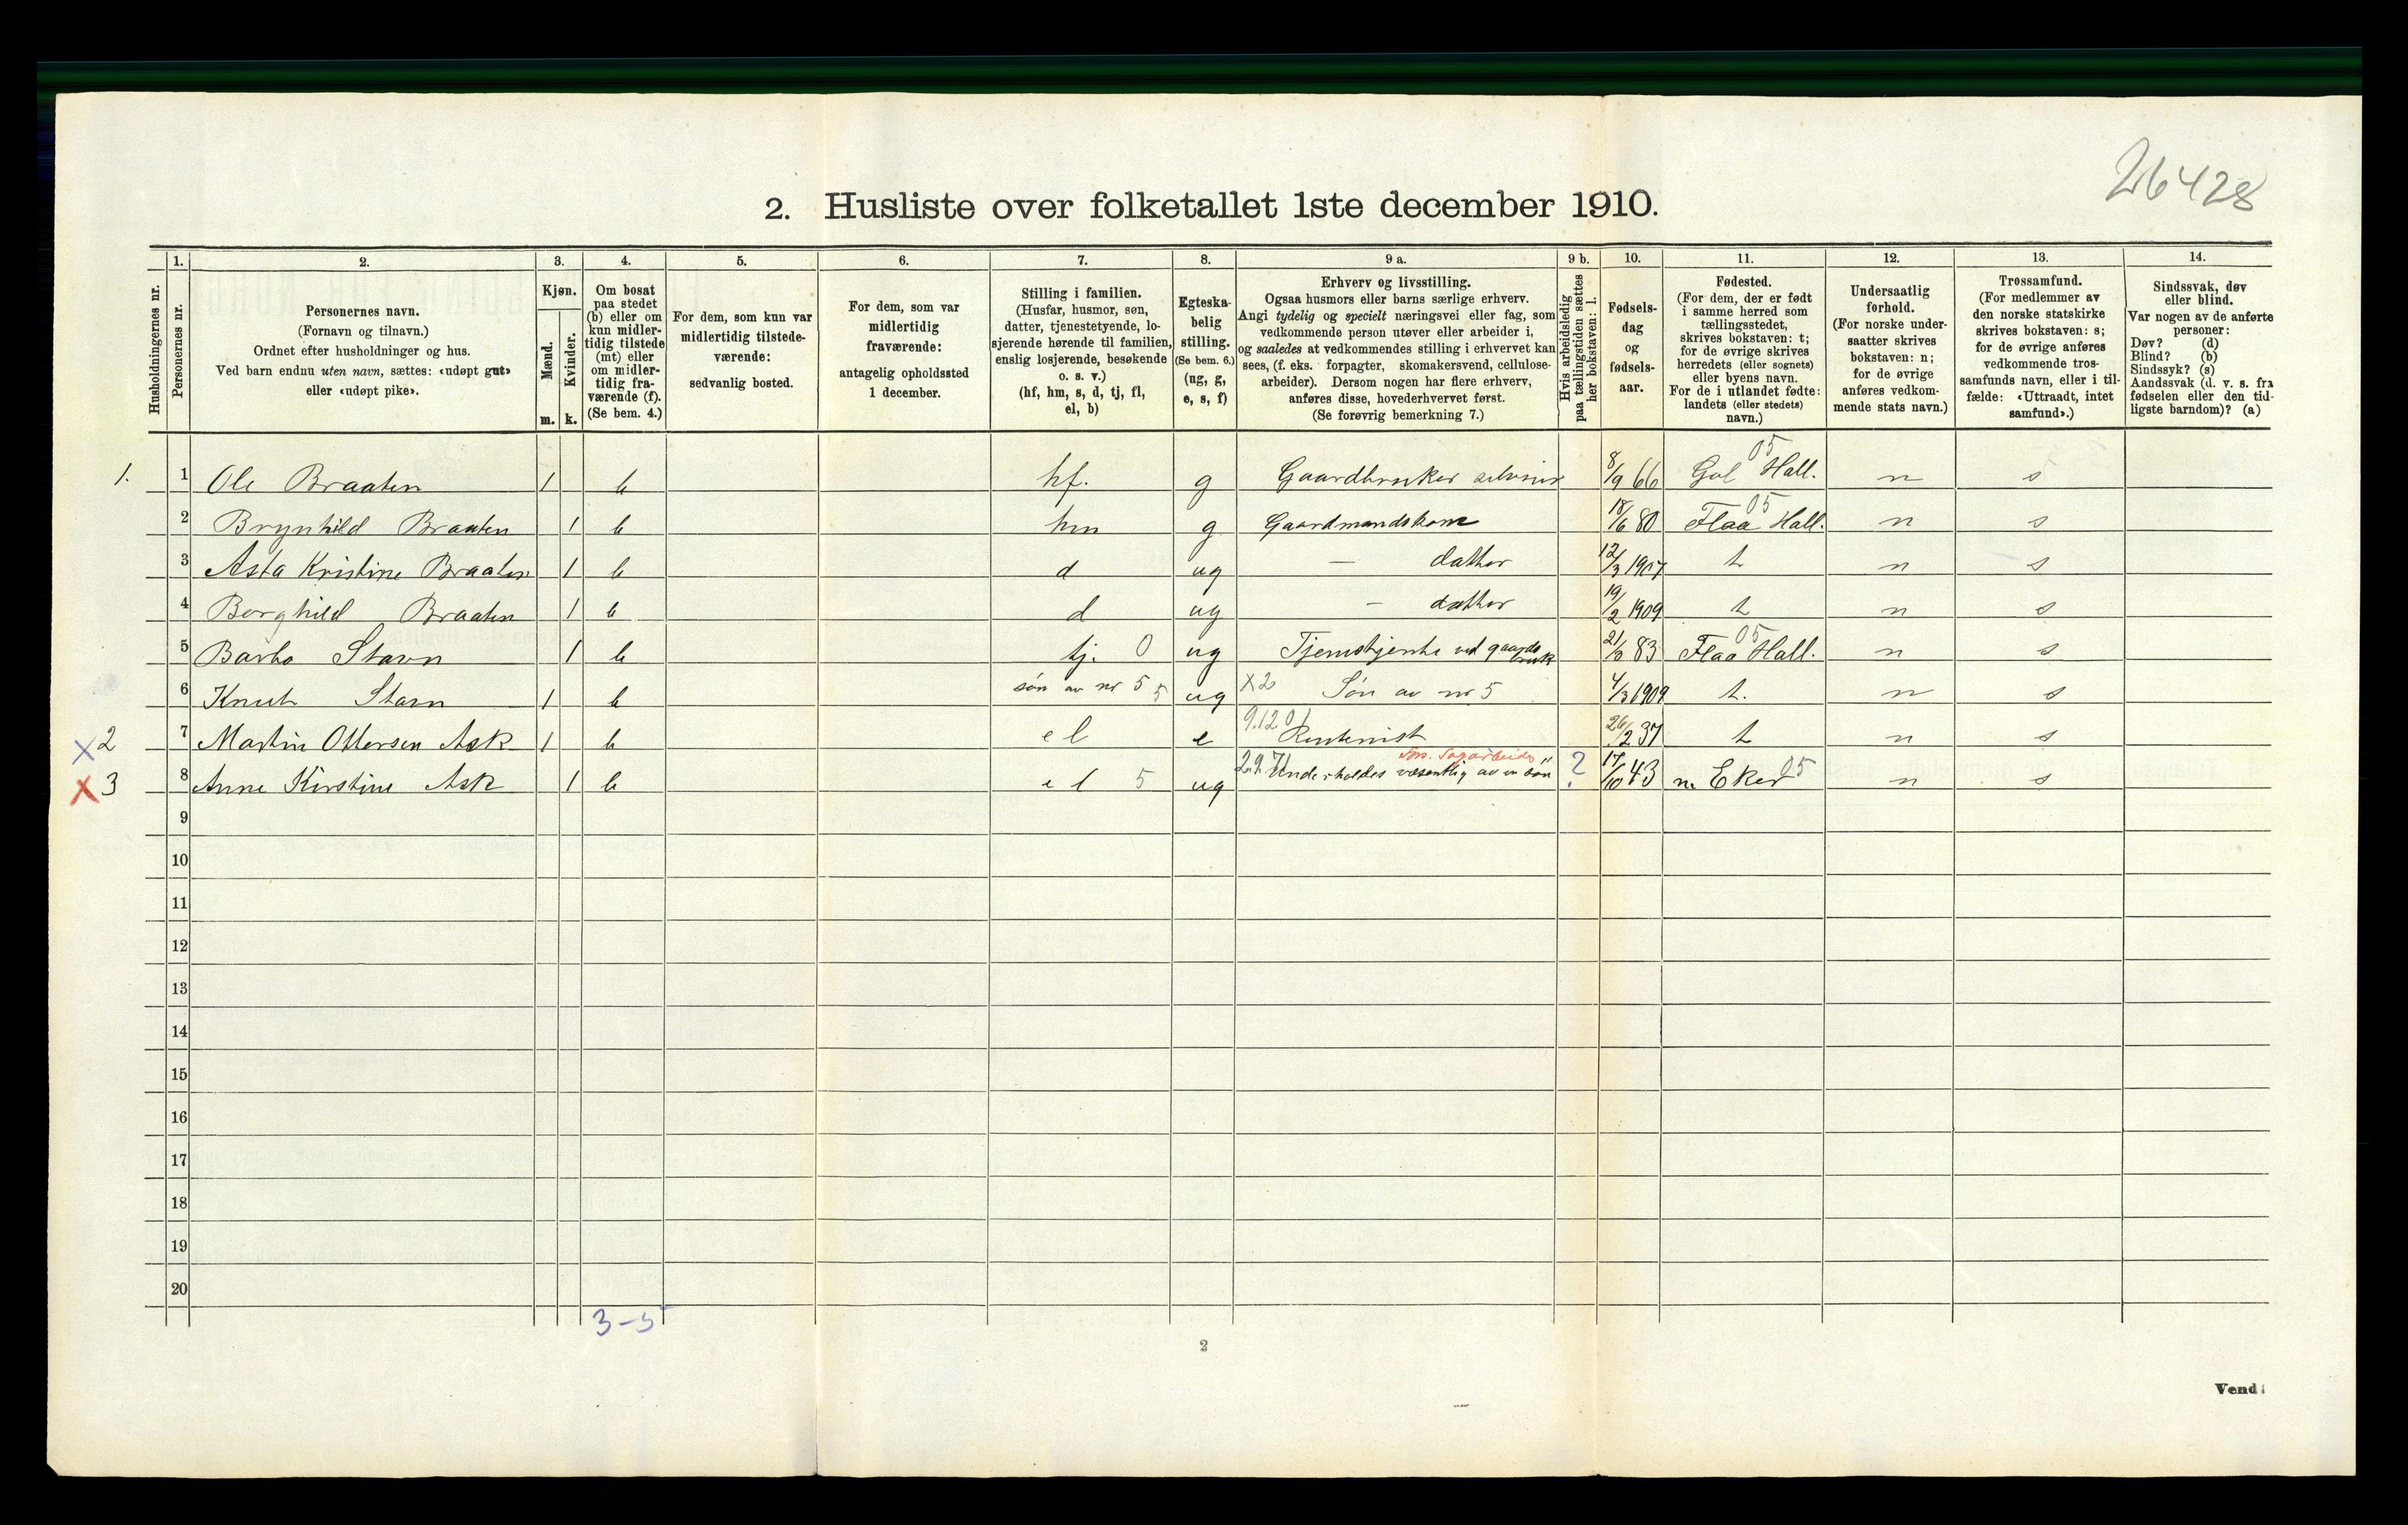 26428
2. Husliste over folketallet 1ste december 1910.
Husholdningernes nr.
1.
Personernes nr.
2.
Personernes navn.
(Fornavn og tilnavn.)
Ordnet efter husholdninger og hus.
Ved barn endnu uten navn, sættes: «udøpt gut»
eller «udøpt pike».
3.
Kjøn.
Mænd.
Kvinder.
m. k.
4.
Om bosat
paa stedet
(b) eller om
kun midler-
tidig tilstede
(mt) eller
om midler-
tidig fra-
værende (f).
(Se bem. 4.)
5.
For dem, som kun var
midlertidig tilstede-
værende:
sedvanlig bosted.
6.
For dem, som var
midlertidig
fraværende:
antagelig opholdssted
1 december.
7.
Stilling i familien.
(Husfar, husmor, søn,
datter, tjenestetyende, lo-
sjerende hørende til familien,
enslig losjerende, besøkende
o. s. v.)
(hf, hm, s, d, tj, fl,
el, b)
8.
Egteska-
belig
stilling.
(Se bem. 6.)
(ug, g,
e, s, f)
9 a.
Erhverv og livsstilling.
Ogsaa husmors eller barns særlige erhverv.
Angi tydelig og specielt næringsvei eller fag, som
vedkommende person utøver eller arbeider i,
og saaledes at vedkommendes stilling i erhvervet kan
sees, (f. eks. forpagter, skomakersvend, cellulose-
arbeider). Dersom nogen har flere erhverv,
anføres disse, hovederhvervet først.
(Se forøvrig bemerkning 7.)
9 b.
Hvis arbeidsledig
paa tællingstiden sættes
her bokstaven: l.
10.
Fødsels-
dag
og
fødsels-
aar.
11.
Fødested.
(For dem, der er født
i samme herred som
tællingsstedet,
skrives bokstaven: t;
for de øvrige skrives
herredets (eller sognets)
eller byens navn.
For de i utlandet fødte:
landets (eller stedets)
navn.)
12.
Undersaatlig
forhold.
(For norske under-
saatter skrives
bokstaven: n;
for de øvrige
anføres vedkom-
mende stats navn.)
13.
Trossamfund.
(For medlemmer av
den norske statskirke
skrives bokstaven: s;
for de øvrige anføres
vedkommende tros-
samfunds navn, eller i til-
fælde: «Uttraadt, intet
samfund».)
14.
Sindssvak, døv
eller blind.
Var nogen av de anførte
personer:
Døv? (d)
Blind? (b)
Sindssyk? (s)
Aandssvak (d. v. s. fra
fødselen eller den tid-
ligste barndom)? (a)
1. 1 Ole Braaten 1 b hf. g Gaardbruker selveier 8/9 66 Gol Hall. 05 n s
2 Brynhild Braaten 1 b hm g Gaardmandskone 18/6 80 Flaa Hall. 05 n s
3 Asta Kristine Braaten 1 b d ug — datter 12/3 1907 t n s
4 Borghild Braaten 1 b d ug — datter 19/2 1909 t n s
5 Barbo Stavn 1 b tj. 0 ug Tjenestjente ved gaardsbruk 83 Flaa Hall. 05 n s
6 Knut Stavn 1 b søn av nr 5 5 ug X2 Søn av nr 5 4/3 1909 t. n s
X 2 7 Martin Ottersen Ask 1 b el e 9.120 Rentenist 26/2 37 t n s
X 3 8 Anne Kirstine Ask 1 b el 5 ug 2.9. Underholdes væsentlig av en søn ? 17/10 43 n. Eker 05 n s
9
10
11
12
13
14
15
16
17
18
19
20
3-5
2
Vend!